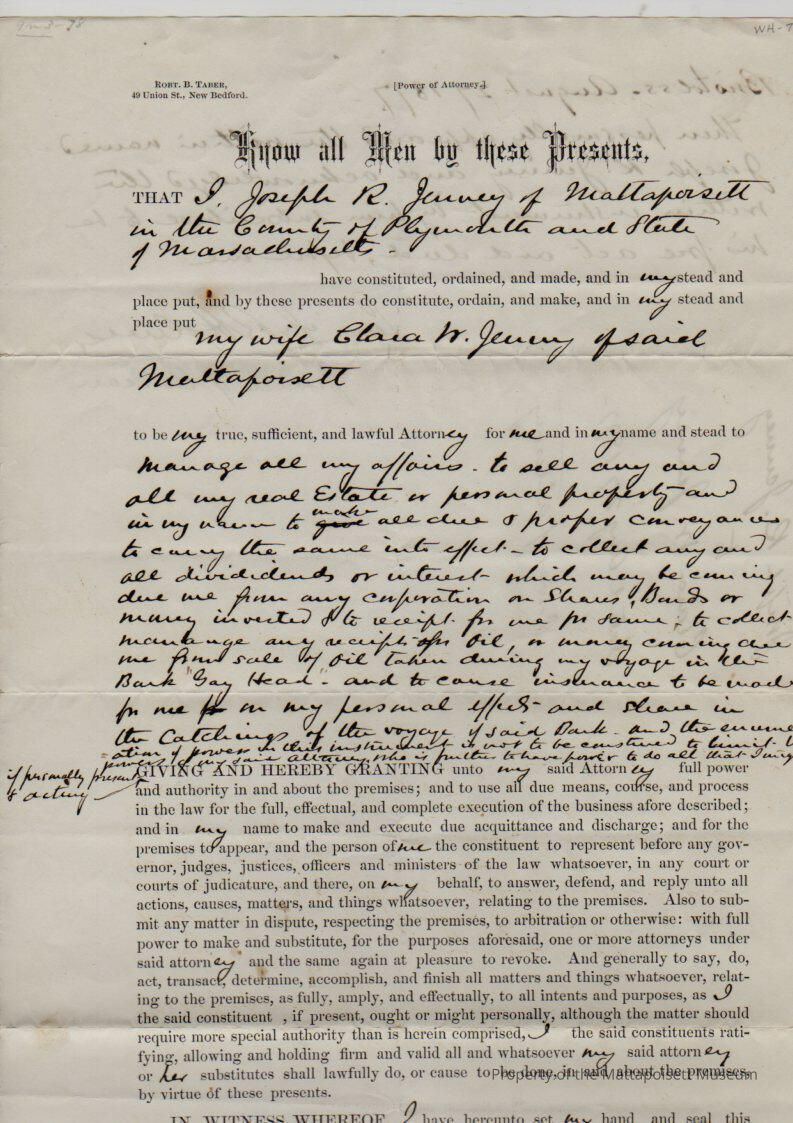 9m3-78
WH-7
ROBT. B. TABER,
49 Union St., New Bedford.
[Power of Attorney.]
Know all Men by these Presents,
THAT I, Joseph R. Jenney of Mattapoisett
in the County of Plymouth and State
of Massachusetts -
have constituted, ordained, and made, and in my stead and
place put, and by these presents do constitute, ordain, and make, and in my stead and
place put
my wife Clara W. Jenney of said
Mattapoisett
to be my true, sufficient, and lawful Attorney for me and in my name and stead to
manage all my affairs - to sell any and
all my real Estate or personal property and
in my name to give make all due & proper conveyances
to carry the same into effect - to collect any and
all divididends or interest which may be coming
due me from any corporation on Shares, Bonds or
money invested & to receipt for me for same, to collect
manange any receipts for Oil, or money coming due
me from sale of Oil taken during my voyage in the
Bark "Gay Head" - and to cause insurance to be made
for me on my personal effects and share in
the Catchings of the voyage of said Bark - and the enumer
-ation of powers in this instrument is not to be construed to limit
powers of my said attorney who is further to have power to do all that I might
if personally present
& acting
GIVING AND HEREBY GRANTING unto my said Attorney full power
and authority in and about the premises; and to use all due means, course, and process
in the law for the full, effectual, and complete execution of the business afore described;
and in my name to make and execute due acquittance and discharge; and for the
premises to appear, and the person of me the constituent to represent before any gov-
ernor, judges, justices, officers and ministers of the law whatsoever, in any court or
courts of judicature, and there, on my behalf, to answer, defend, and reply unto all
actions, causes, matters, and things whatsoever, relating to the premises. Also to sub-
mit any matter in dispute, respecting the premises, to arbitration or otherwise: with full
power to make and substitute, for the purposes aforesaid, one or more attorneys under
said attorney and the same again at pleasure to revoke. And generally to say, do,
act, transact, determine, accomplish, and finish all matters and things whatsoever, relat-
ing to the premises, as fully, amply, and effectually, to all intents and purposes, as I
the said constituent , if present, ought or might personally, although the matter should
require more special authority than is herein comprised, I the said constituents rati-
fying, allowing and holding firm and valid all and whatsoever my said attorney
or her substitutes shall lawfully do, or cause to be done, in and about the premises,
by virtue of these presents.
Property of the Mattapoisett Museum
IN WITNESS WHEREOF I have hereunto set my hand and seal this